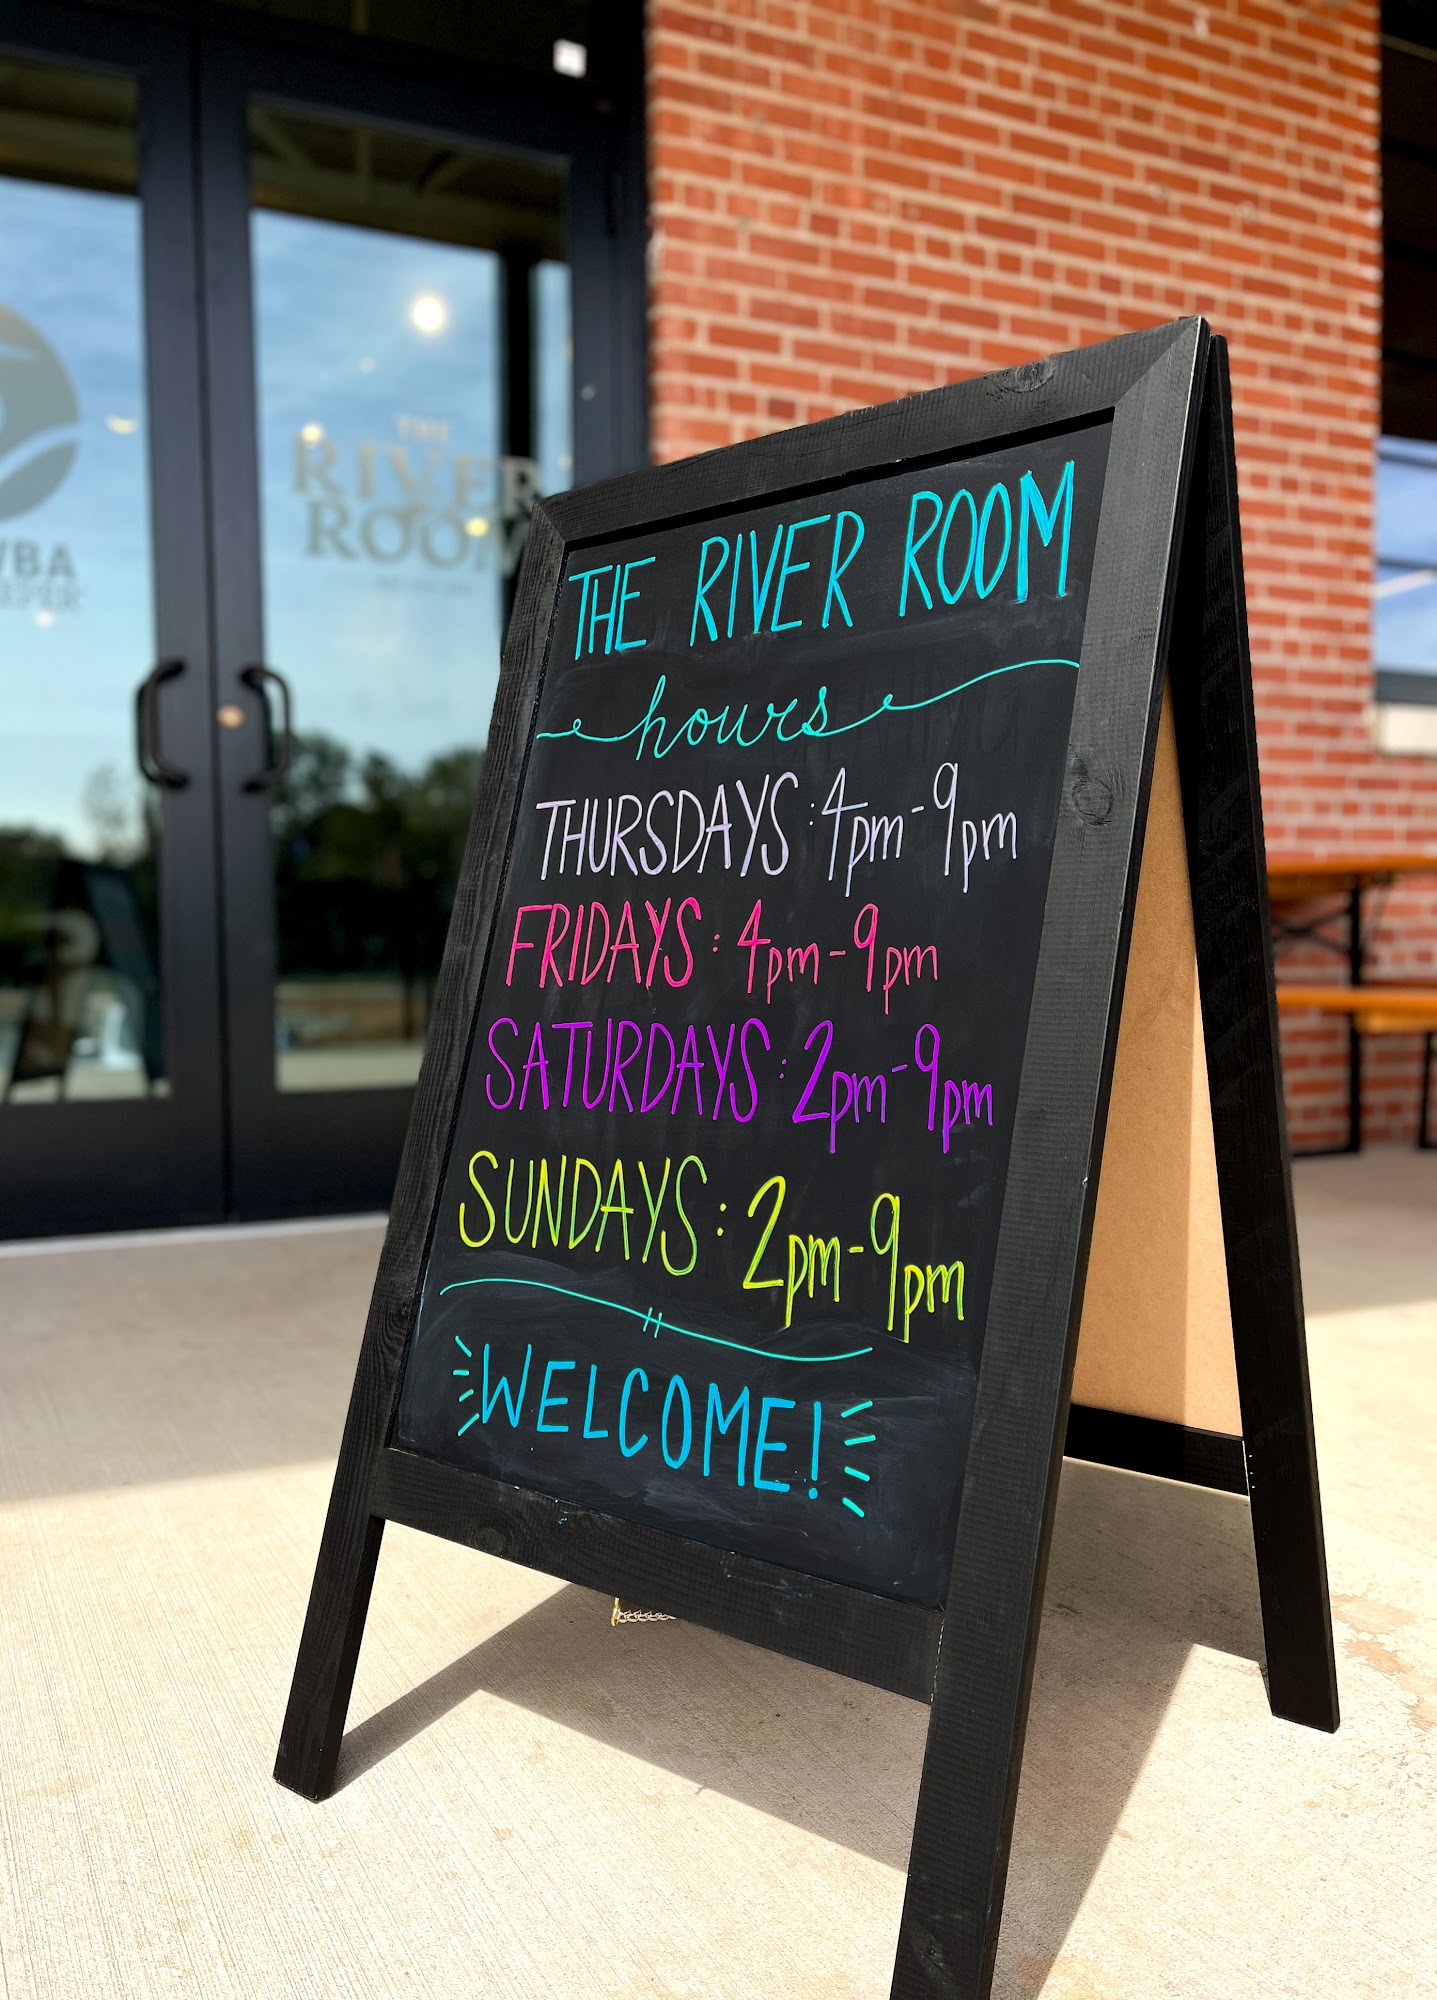 THE RIVER ROOM
hours
THURSDAYS: 4pm-9pm
FRIDAYS: 4pm-9pm
SATURDAYS: 2pm-9pm
SUNDAYS: 2pm-9pm
WELCOME!
THE
RIVER
ROOM